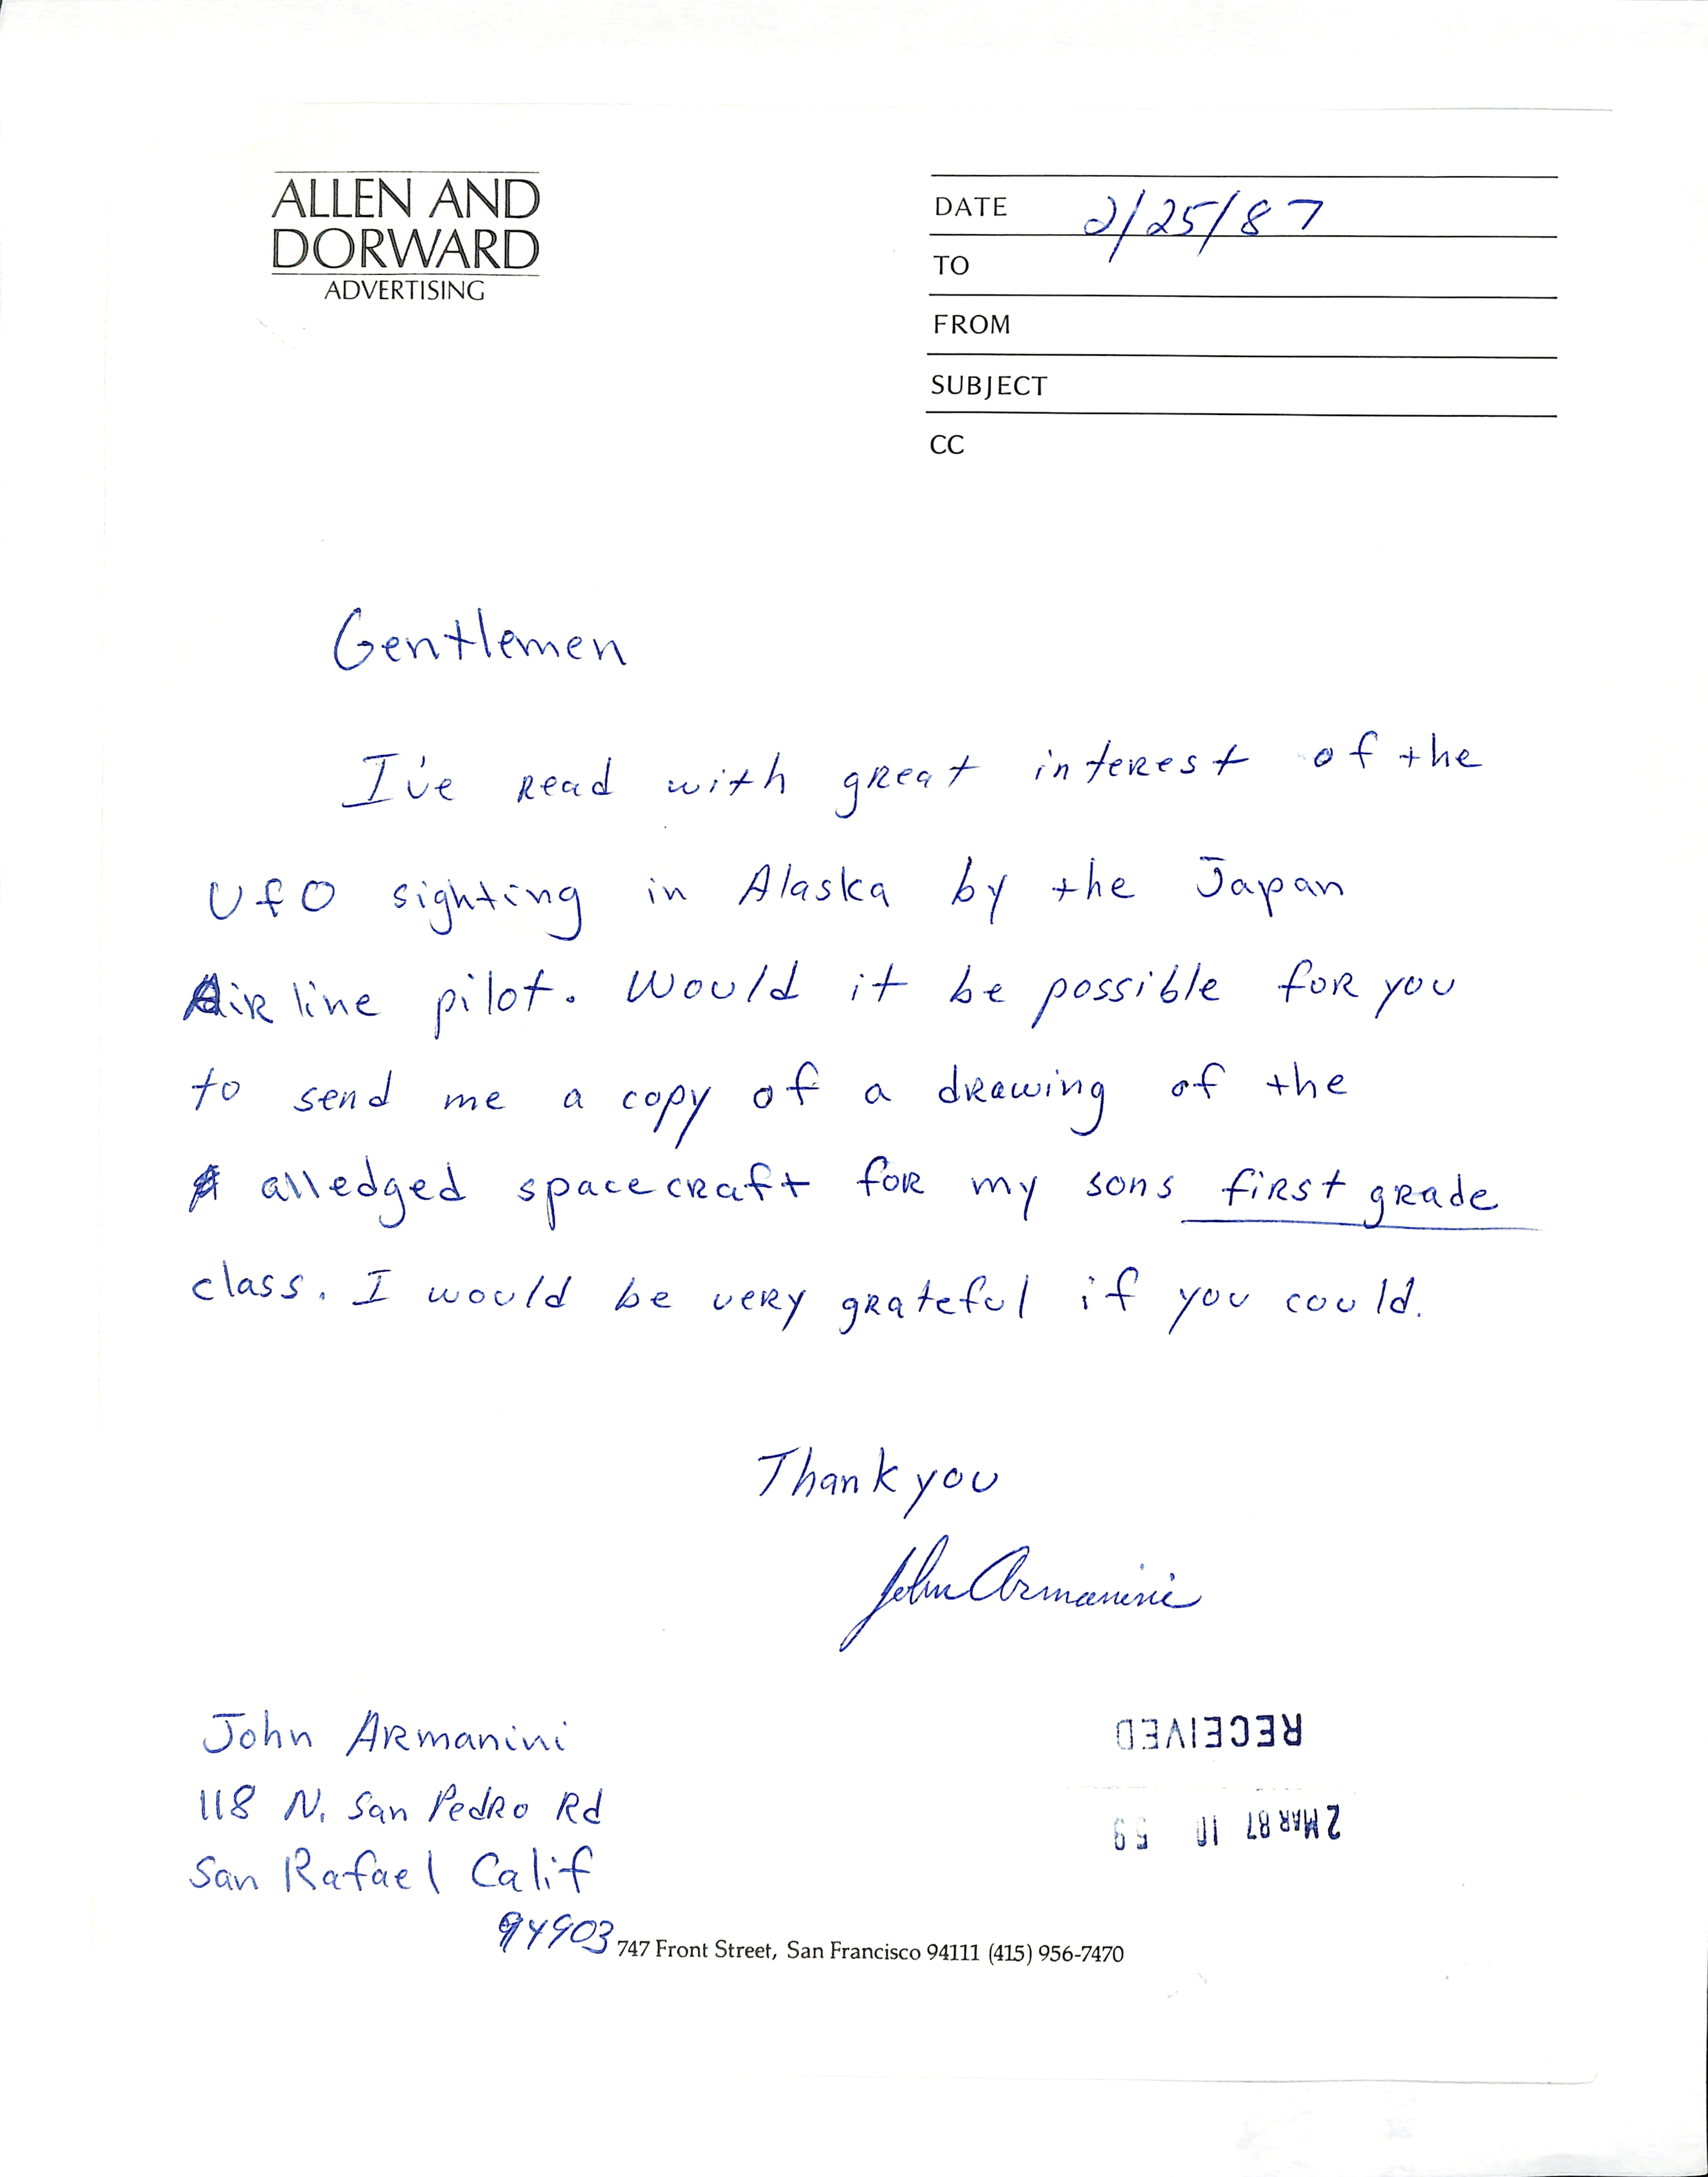 ALLEN AND
DORWARD
ADVERTISING
DATE 2/25/87
TO
FROM
SUBJECT
CC
Gentlemen
I've read with great interest of the
UfO sighting in Alaska by the Japan
Airline pilot. Would it be possible for you
to send me a copy of a drawing of the
alledged spacecraft for my sons first grade
class. I would be very grateful if you could.
Thank you
John Armanini
John Armanini
118 N. San Pedro Rd
San Rafael Calif
94903
RECEIVED
2 MAR 87 10 59
747 Front Street, San Francisco 94111 (415) 956-7470